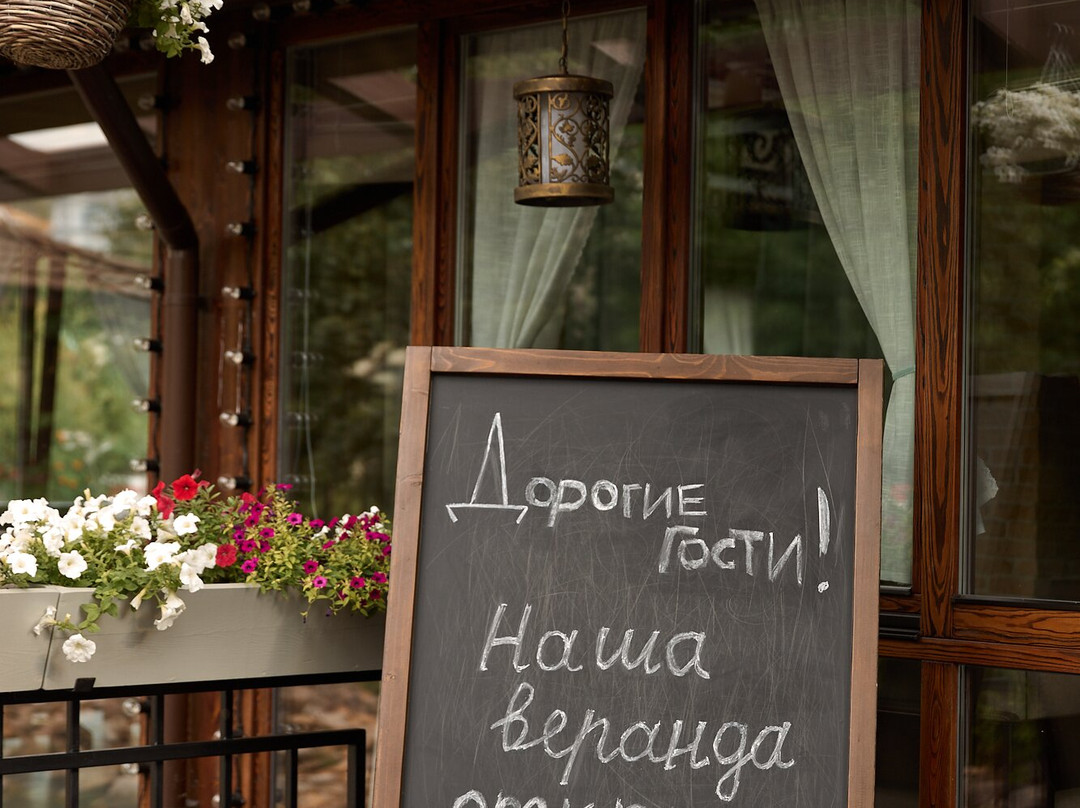 Дорогие
Гости!
Наша
веранда